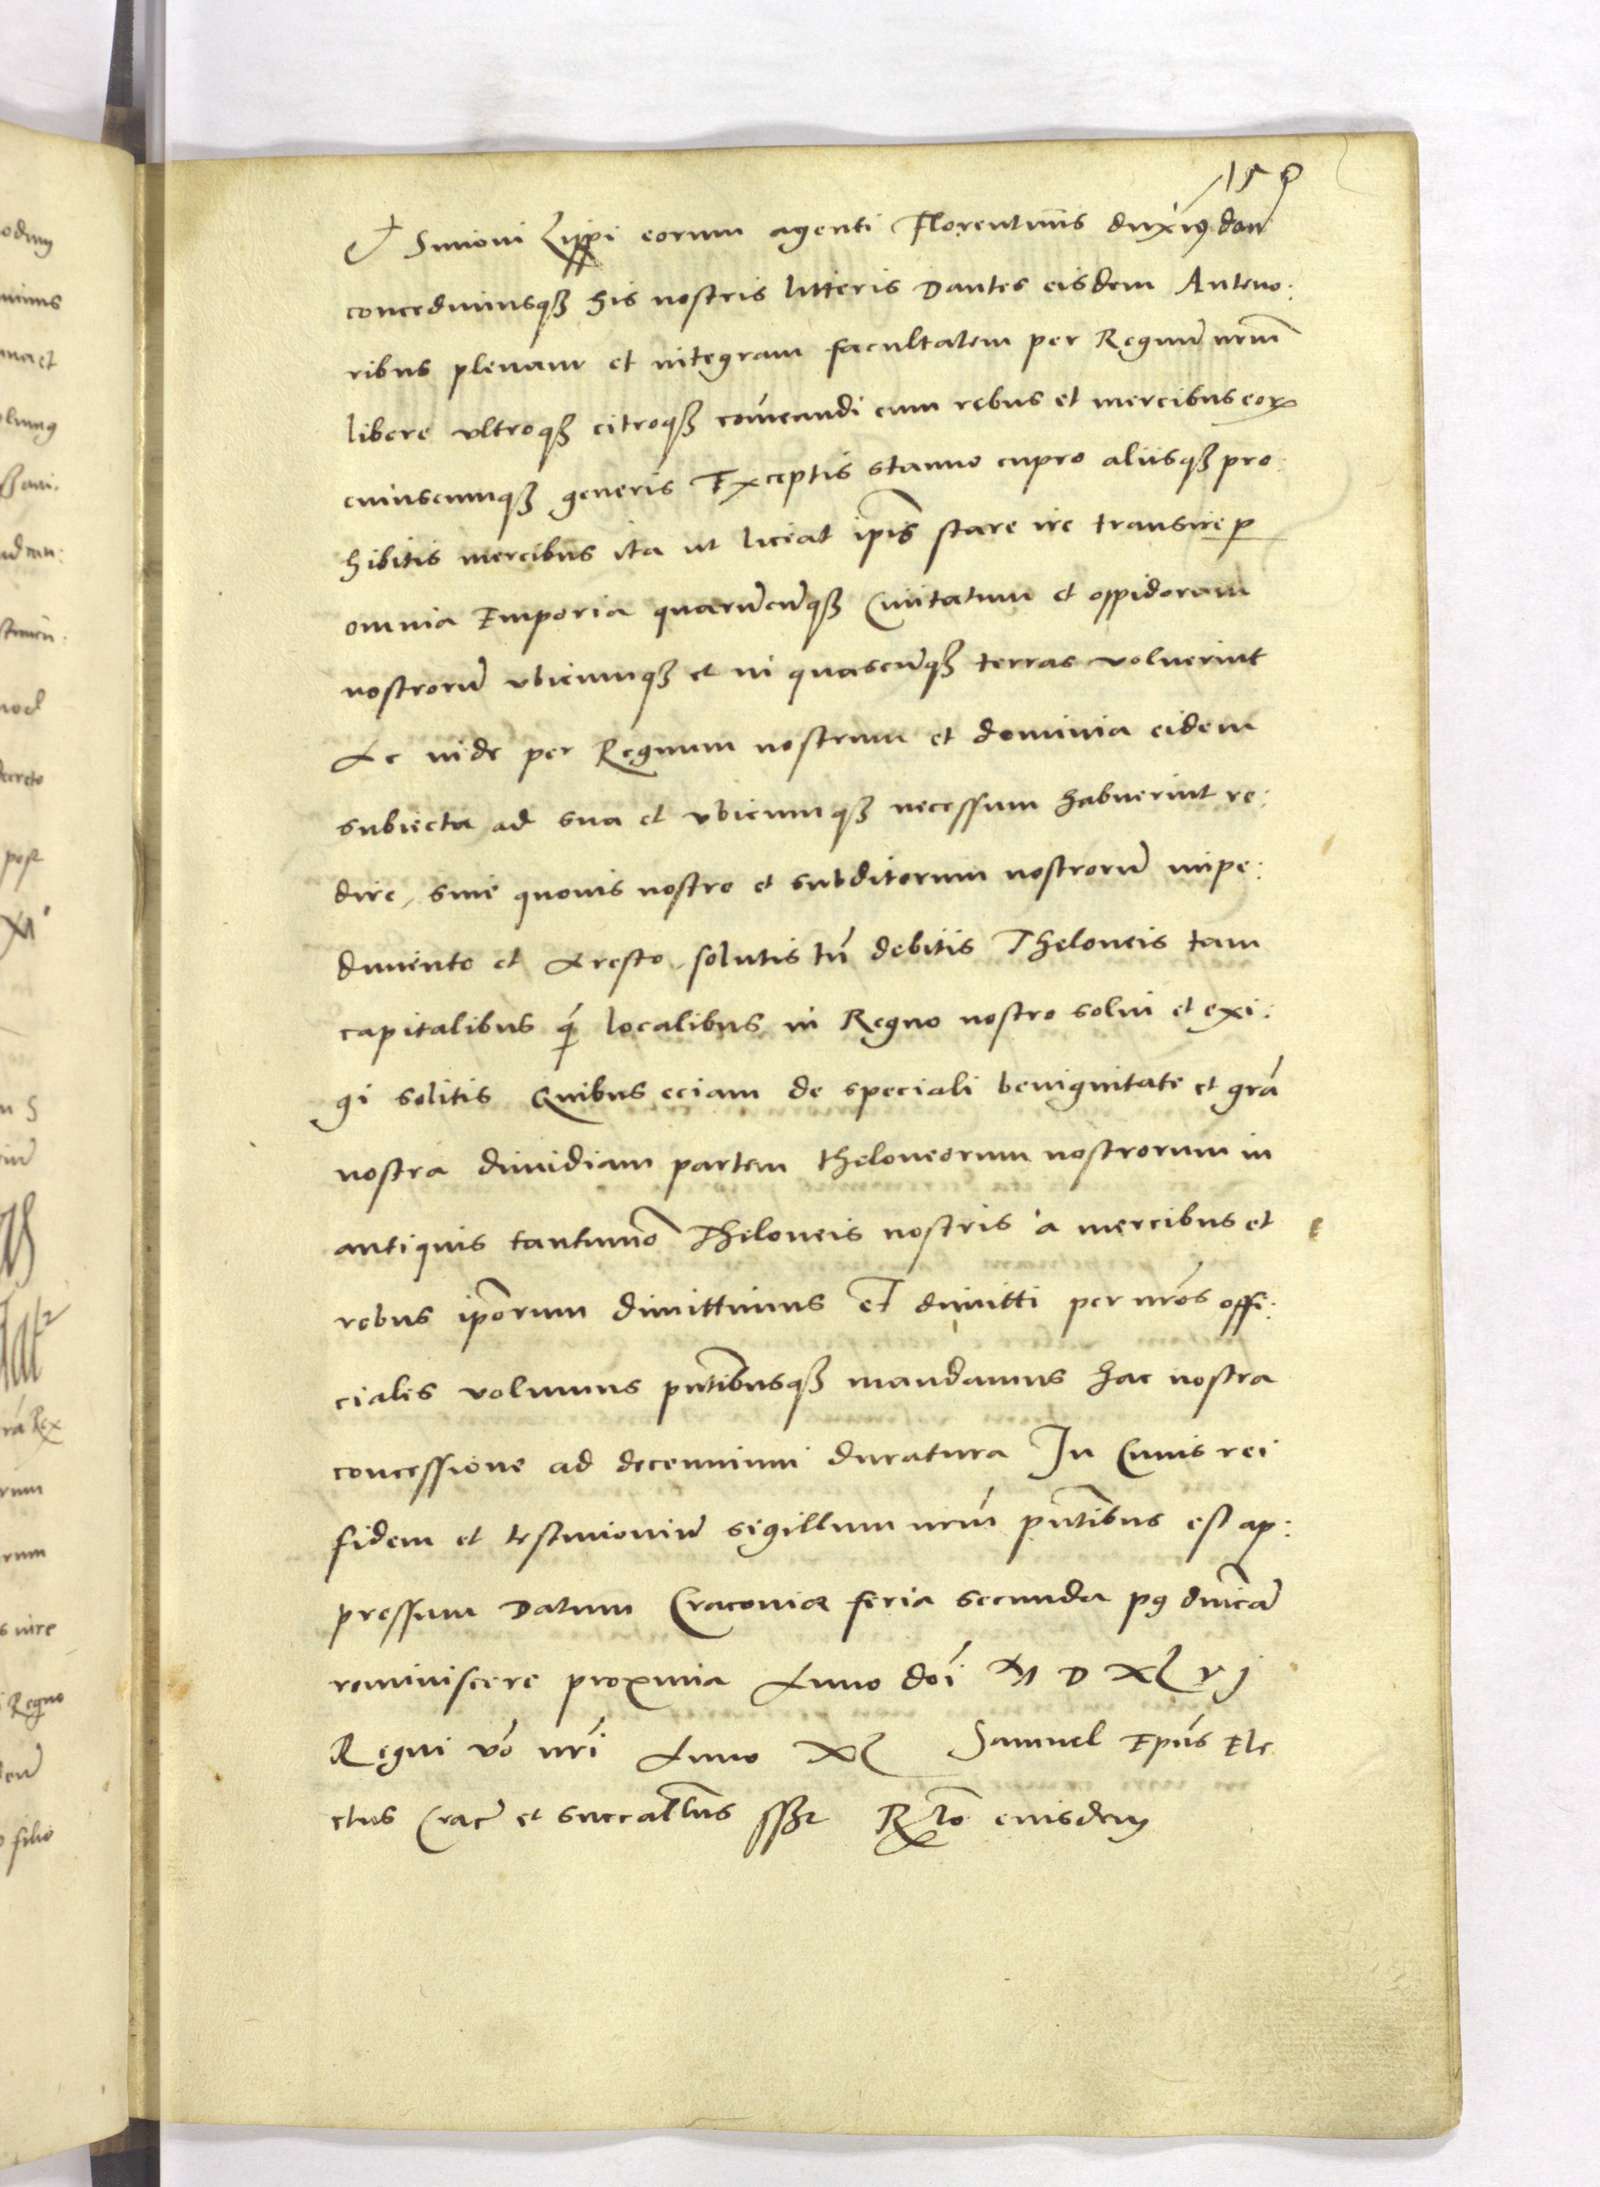 159
Et Simoni Lippi eorum agenti Florentinis duximus dan
concedimusqȝ his nostris litteris Dantes eisdem Anteno:
ribus plenam et integram facultatem per Regnū nrm̄
libere vltroqȝ citroqȝ com̄eandi cum rebus et mercibus eorꝝ
cuiuscumqȝ generis Exceptis stanno cupro aliisqȝ pro:
hibitis mercibus ita ut liceat ip̄is stare ire transire p
omnia Emporia quarūcūqȝ Ciuitatum et oppidorum
nostrorū vbicumqȝ et in quascūqȝ terras voluerint
Ac inde per Regnum nostrum et dominia eidem
subiecta ad sua et vbicumqȝ necessum habuerint re:
dire, sine quouis nostro et subditorum nostrorū impe:
dimento et Aresto, solutis tn̄ debitis Theloneis tam
capitalibus q̄ localibus in Regno nostro solui et exi:
gi solitis Quibus eciam de speciali benignitate et gr̄a
nostra dimidiam partem theloneorum nostrorum in
antiquis tantumo Theloneis nostris a mercibus et
rebus ip̄orum dimittimus et dimitti per nr̄os offi:
cialis volumus pn̄tibusqȝ mandamus hac nostra
concessione ad decennium duratura In Cuius rei
fidem et testimoniū sigillum nrm̄ pn̄tibus est ap:
pressum Datum Cracoviæ feria secunda pꝰ dn̄icā
reminiscere proxima Anno do͞i M D XL vj
Regni vo nr̄i Anno XL Samuel Ep̄us Ele
ctus Crac̄ et viceca͞lius sszt Rl̄o eiusdem